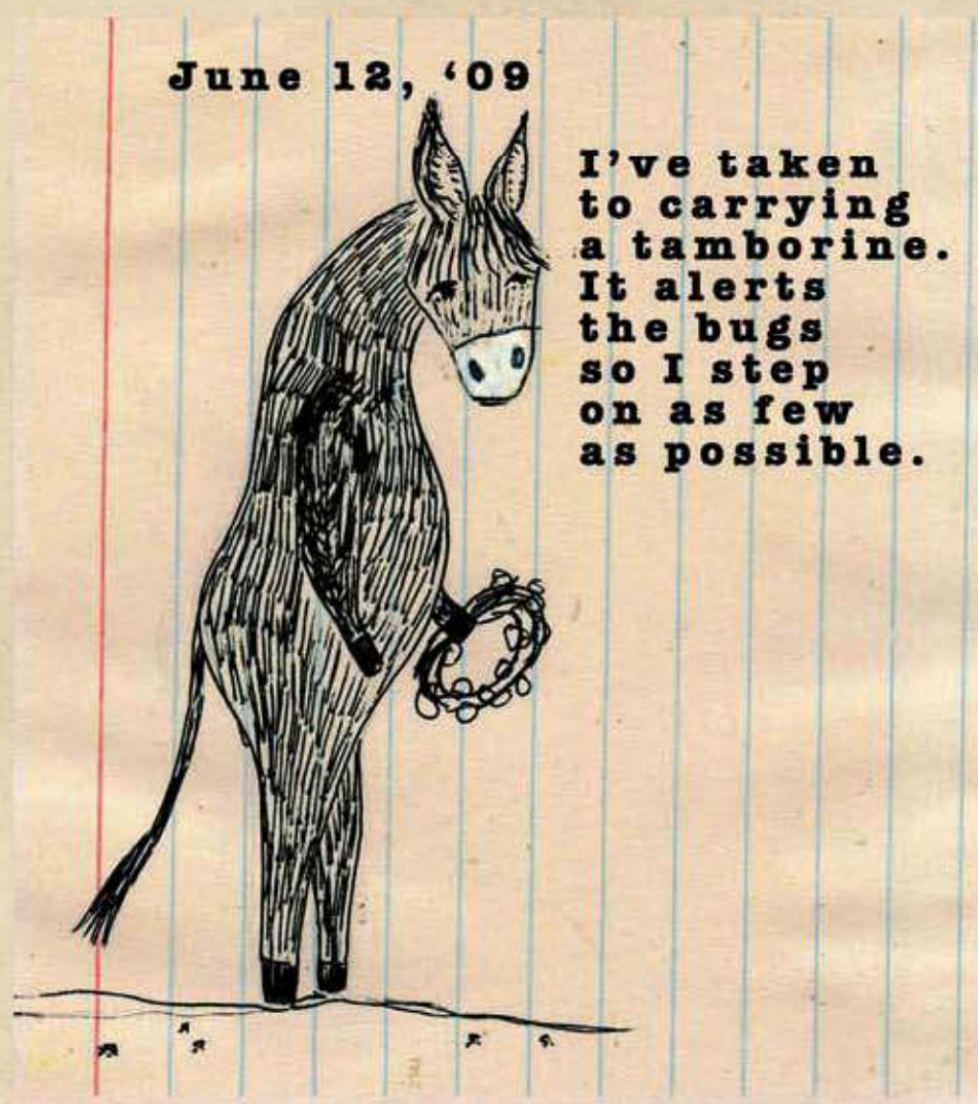 June 12, ‘09
I’ve taken
to carrying
a tamborine.
It alerts
the bugs
so I step
on as few
as possible.